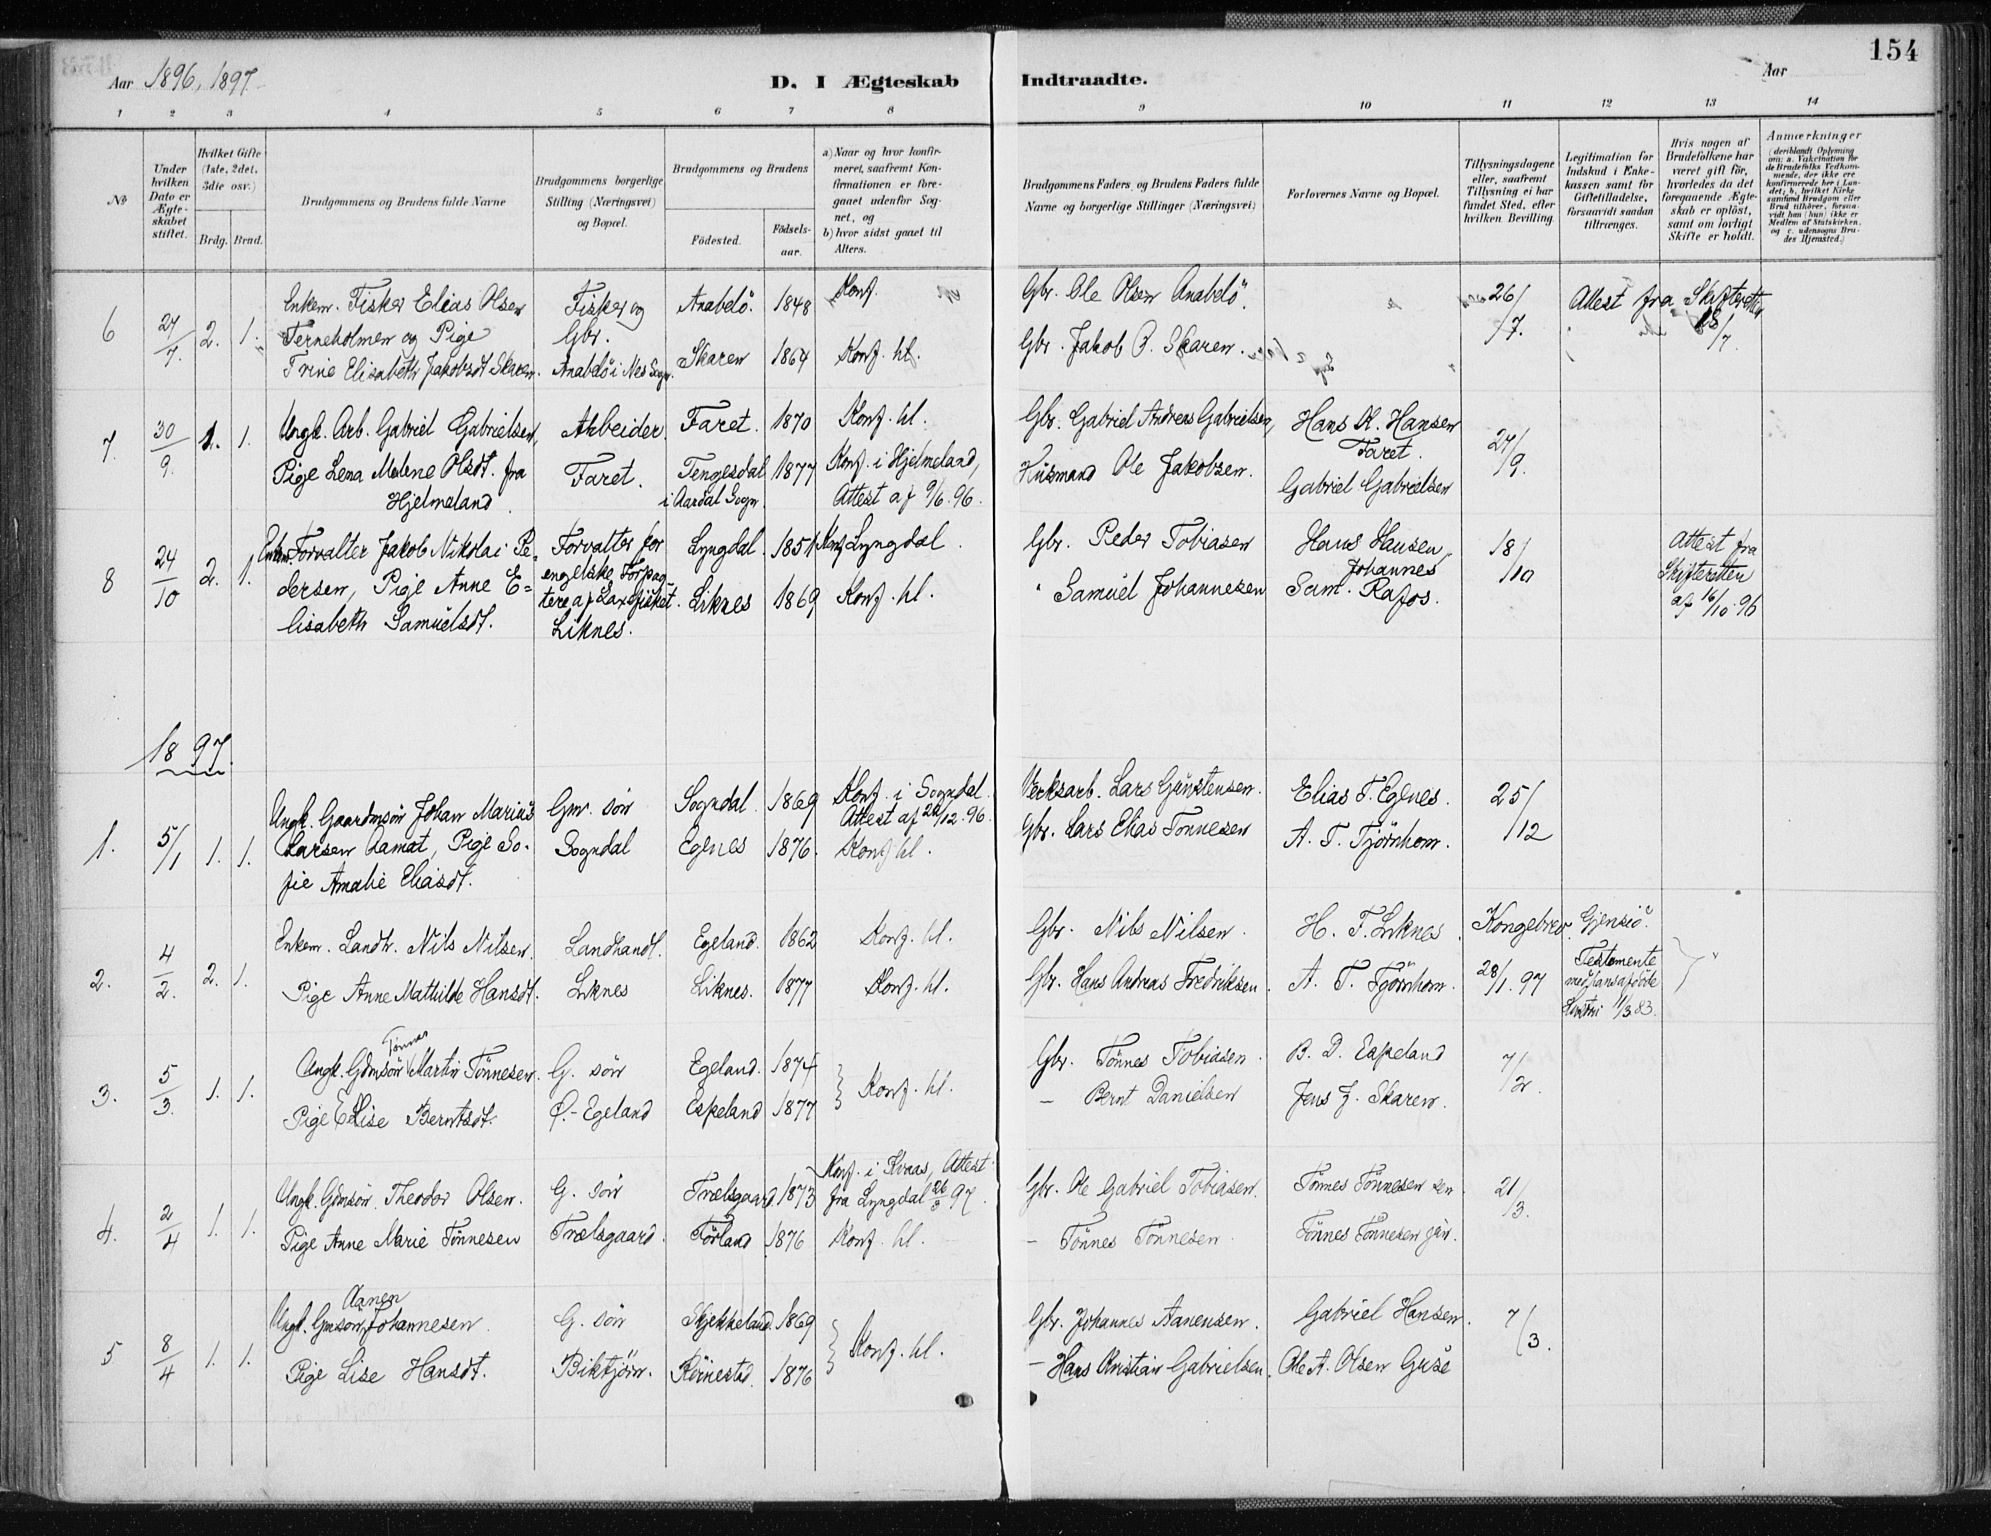 154
Aar 1896, 1897
D. I Ægteskab Indtraadte.
Aar
1 2 3 4 5 6 7 8 9 10 11 12 13 14
No
Under hvilken Dato er Ægteskabet stiftet.
Hvilket Gifte (1ste, 2det, 3die osv.)
Brdg. Brud.
Brudgommens og Brudens fulde Navne
Brudgommens borgerlige Stilling (Næringsvei) og Bopæl.
Brudgommens og Brudens
Fødested.
Fødsels-aar.
a) Naar og hvor konfirmeret, saafremt Konfirmationen er foregaaet udenfor Sognet, og
b) hvor sidst gaaet til Alters.
Brudgommens Faders og Brudens Faders fulde Navne og borgerlige Stillinger (Næringsvei)
Forlovernes Navne og Bopæl.
Tillysningsdagene eller, saafremt Tillysning ei har fundet Sted, efter hvilken Bevilling.
Legitimation for Indskud i Enkekassen samt for Giftetilladelse, forsaavidt saadan tiltrænges.
Hvis nogen af Brudefolkene har været gift før, hvorledes da det foregaaende Ægteskab er opløst, samt om lovligt Skifte er holdt.
Anmærkninger (deriblandt Oplysning om: a. Vakcination for de Brudefolks Vedkommende, der ikke ere konfirmerede her i Landet; b. hvilket Kirkesamfund Brudgom eller Brud tilhører, forsaavidt han (hun) ikke er Medlem af Statskirken, og c. udensogns Brudes Hjemsted.)
6 27/7. 2. 1.
Enkem. Fisker Elias Olsen
Terneholmen og Pige
Trine Elisabeth Jakobsdt Skaren.
Fisker og
Gbr.
Anabelö i Nes Sogn.
Anabelö. 1848 Konf.
Skaren 1864 Konf. hl.
Gbr. Ole Olsen Anabelö.
Gbr. Jakob O. Skaren.
26/7.
Attest fra Skifteretten
18/7
7. 30/9. 1. 1.
Ungk. Arb. Gabriel Gabrielsen,
Pige Lena Malene Olsdt. fra
Hjelmeland.
Arbeider.
Faret.
Faret. 1870 Konf. hl.
Tengesdal 1877 Konf. i Hjelmeland,
i Aardal Sogn Attest af 9/6. 96.
Gbr. Gabriel Andreas Gabrielsen,
Husmand Ole Jakobsen.
Hans K. Hansen
Faret.
Gabriel Gabrielsen
27/9.
8 24/10 2. 1.
Enkem. Forvalter Jakob Nikolai Pe-
dersen, Pige Anne E-
lisabeth Samuelsdt.
Forvalter for
engelske Forpag-
tere af Laxefisket.
Liknes.
Lyngdal. 1851 Konf Lyngdal.
Liknes 1869 Konf. hl.
Gbr. Peder Tobiasen
" Samuel Johannesen
Hans Hansen
Johannes
Sam. Rafos.
18/10
Attest fra
Skifteretten
af 16/10. 96
1897.
1. 5/1 1. 1.
Ungk. Gaardmsön Johan Marius
Larsen Aamot, Pige So-
fie Amalie Eliasdt.
Gm. sön
Sogndal
Sogndal. 1869 Konf. i Sogndal.
Attest af 22/12. 96.
Egenes 1876. Konf hl.
Verksarb. Lars Gunstensen.
Gbr. Lars Elias Tönnesen
Elias T. Egenes.
A. T. Tjörnhom.
25/12
2. 4/2. 2. 1.
Enkem. Landh. Nils Nilsen.
Pige Anne Mathilde Hansdt.
Landhandl.
Liknes
Egeland. 1862 Konf. hl.
Liknes. 1877 Konf. hl.
Gbr. Nils Nilsen.
Gbr. Hans Andreas Fredriksen.
H. F. Liknes.
A. T. Tjörnhom.
Kongebrev.
28/1. 97
Gjensid.
Testamente
med hans afdöde
Hustru 11/3 83.
3. 5/3. 1. 1.
Tönnes
Ungk. Gdmsön Martin Tönnesen.
Pige Elise Berntsdt.
G. sön
Ö.-Egeland
Egeland. 1874
Espeland 1877
Konf. hl.
Gbr. Tönnes Tobiasen.
— Bernt Danielsen
B. D. Espeland
Jens J. Skaren.
7/2.
4. 2/4 1. 1.
Ungk. Gdmsön. Theodor Olsen.
Pige Anne Marie Tönnesen
G. sön
Trælsgaard.
Trælsgaard. 1873
Törland 1876
Konf. i Kvaas, Attest
fra Lyngdal 26/3 97.
Konf. hl.
Gbr. Ole Gabriel Tobiasen.
— Tönnes Tönnesen.
Tönnes Tönnesen sen.
Tönnes Tönnesen jün.
21/3.
5 8/4 1. 1.
Aanen
Ungk. Gmsön Johannesen.
Pige Lise Hansdt.
G. sön
Biktjörn.
Skjekkeland. 1869
Röinestad. 1876
Konf. hl.
Gbr. Johannes Aanensen.
— Hans Kristian Gabrielsen.
Gabriel Hansen.
Ole A. Olsen Guse
7/3.